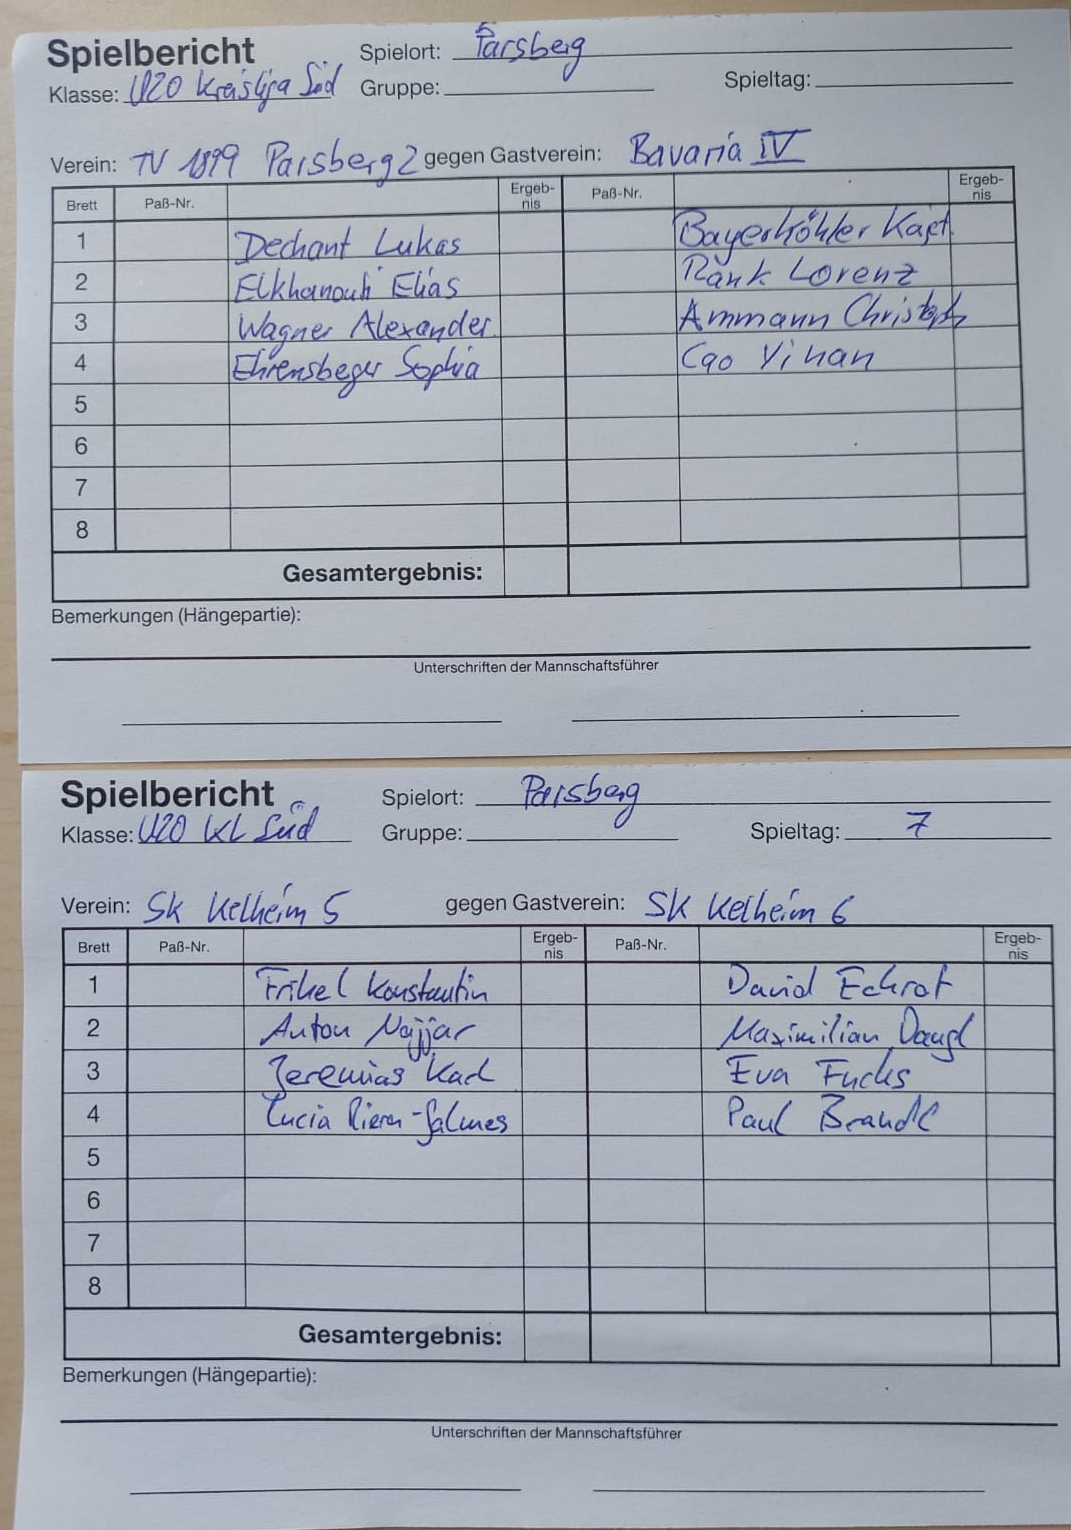 Spielbericht Spielort: Parsberg
Klasse: U20 Kreisliga Süd Gruppe: Spieltag:
Verein: TV 1899 Parsberg 2 gegen Gastverein: Bavaria IV
Brett Paß-Nr. Ergeb-nis Paß-Nr. Ergeb-nis
1 Dechant Lukas Bayerköhler
2 Elias Rank Lorenz
3 Wagner Alexander Ammann Christoph
4 Ehrensbeger Sophia Cao Yinan
5
6
7
8
Gesamtergebnis:
Bemerkungen (Hängepartie):
Unterschriften der Mannschaftsführer
Spielbericht Spielort: Parsberg
Klasse: U20 KL Süd Gruppe: Spieltag: 7
Verein: SK Kelheim 5 gegen Gastverein: SK Kelheim 6
Brett Paß-Nr. Ergeb-nis Paß-Nr. Ergeb-nis
1 Frikel Konstantin David Eckrot
2 Anton Najjar Maximilian
3 Jeremias Karl Eva Fuchs
4 Lucia Paul Brandl
5
6
7
8
Gesamtergebnis:
Bemerkungen (Hängepartie):
Unterschriften der Mannschaftsführer